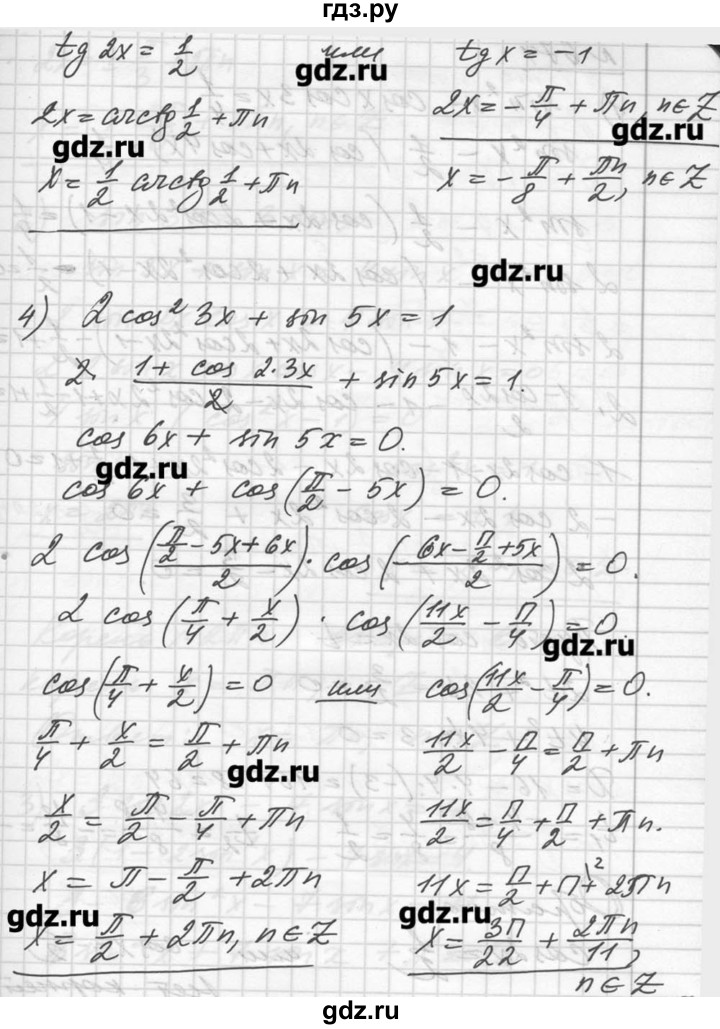 гдз.ру
tg 2x = 1/2 или tg x = -1
gdz.ru
2x = arctg 1/2 + πn 2x = -π/4 + πn, n∈Z
gdz.ru gdz.ru
x = 1/2 arctg 1/2 + πn x = -π/8 + πn/2, n∈Z
gdz.ru
4) 2 cos² 3x + sin 5x = 1
2 · (1 + cos 2·3x)/2 + sin 5x = 1.
cos 6x + sin 5x = 0.
gdz.ru
cos 6x + cos(π/2 - 5x) = 0.
2 cos((π/2 - 5x + 6x)/2) · cos((6x - π/2 + 5x)/2) = 0.
2 cos(π/4 + x/2) · cos(11x/2 - π/4) = 0.
gdz.ru
cos(π/4 + x/2) = 0 или cos(11x/2 - π/4) = 0.
π/4 + x/2 = π/2 + πn 11x/2 - π/4 = π/2 + πn
gdz.ru
x/2 = π/2 - π/4 + πn 11x/2 = π/4 + π/2 + πn.
x = π - π/2 + 2πn 11x = π/2 + π + 2πn
gdz.ru gdz.ru
x = π/2 + 2πn, n∈Z x = 3π/22 + 2πn/11,
n∈Z
gdz.ru